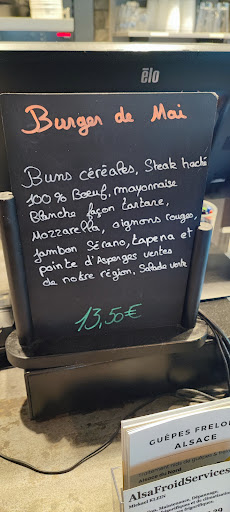 ēlo
Burger de Mai
Buns céréales, Steak haché
100% Boeuf, mayonnaise
Blanche façon tartare,
Mozzarella, oignons rouges,
jambon Sérano, tapena et
pointe d'Asperges vertes
de notre région, Salade verte
13,50€
GUÊPES FRELO
ALSACE
Alsace du Nord
AlsaFroidServices
Mickael KLEIN